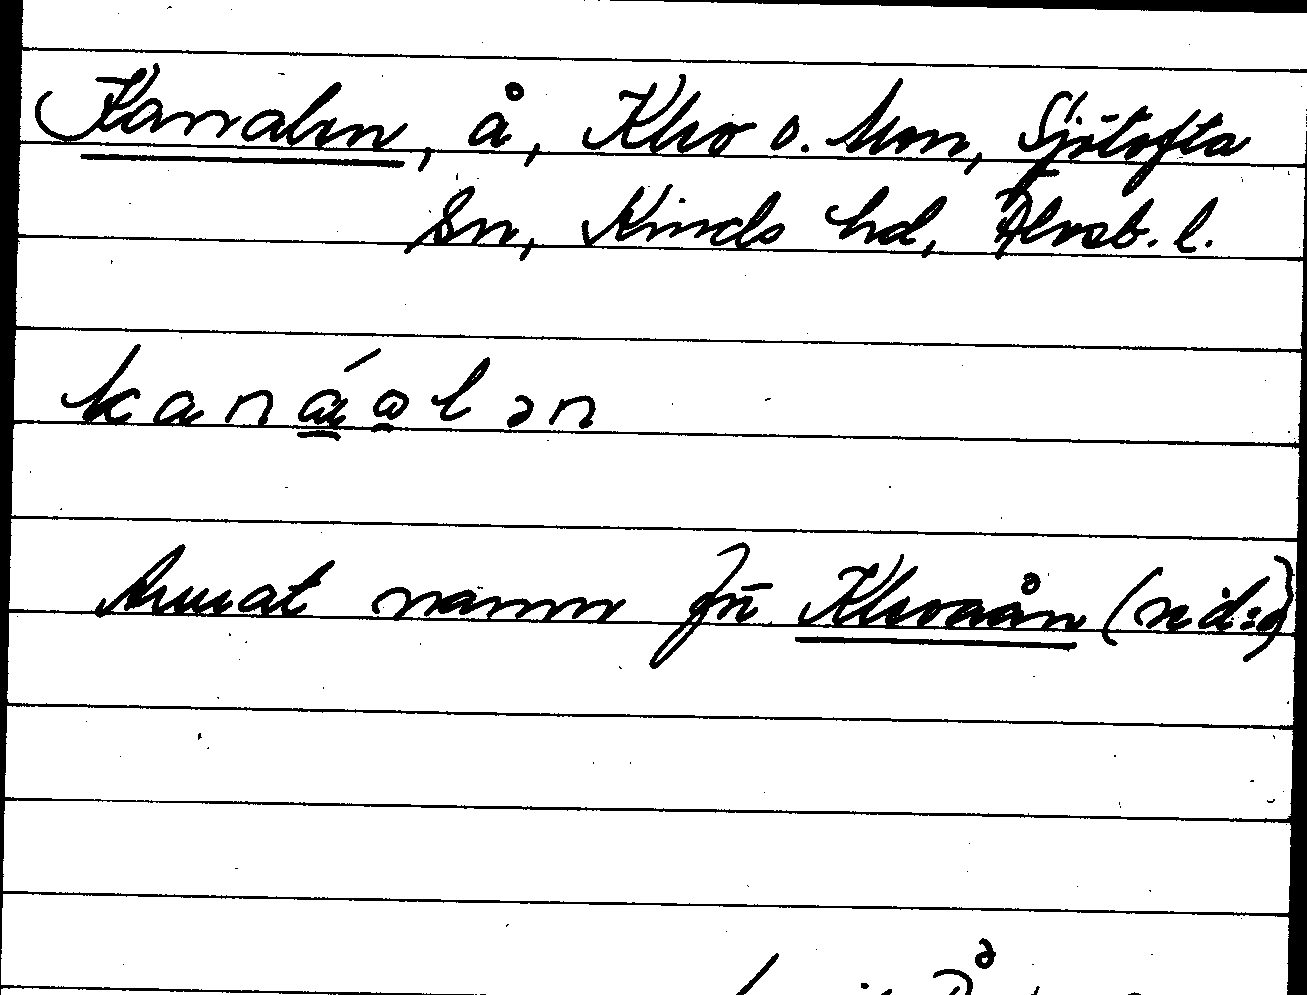 Kanalen, å, Klev o. Mon, Sjötofta
Sn, Kinds hd, Älvsb. l.
kanáɷlən
Annat namn för Klevaån (n.d:o)